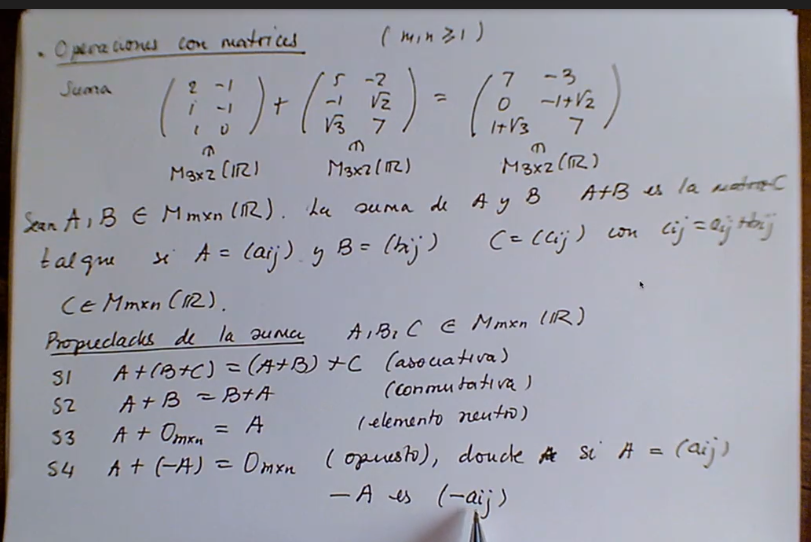 . Operaciones con matrices (m,n ≥ 1)
Suma
( 2 -1 ) + ( 5 -2 ) = ( 7 -3 )
( 1 -1 ) ( -1 √2 ) ( 0 -1+√2 )
( 1 0 ) ( √3 7 ) ( 1+√3 7 )
M3x2(ℝ) M3x2(ℝ) M3x2(ℝ)
Sean A, B ∈ Mmxn(ℝ). La suma de A y B A+B es la matriz C
tal que si A = (aij) y B = (bij) C = (cij) con cij = aij + bij
C ∈ Mmxn(ℝ).
Propiedades de la suma A, B, C ∈ Mmxn(ℝ)
S1 A+(B+C) = (A+B)+C (asociativa)
S2 A+B = B+A (conmutativa)
S3 A + Omxn = A (elemento neutro)
S4 A+(-A) = Omxn (opuesto), donde si A = (aij)
-A es (-aij)